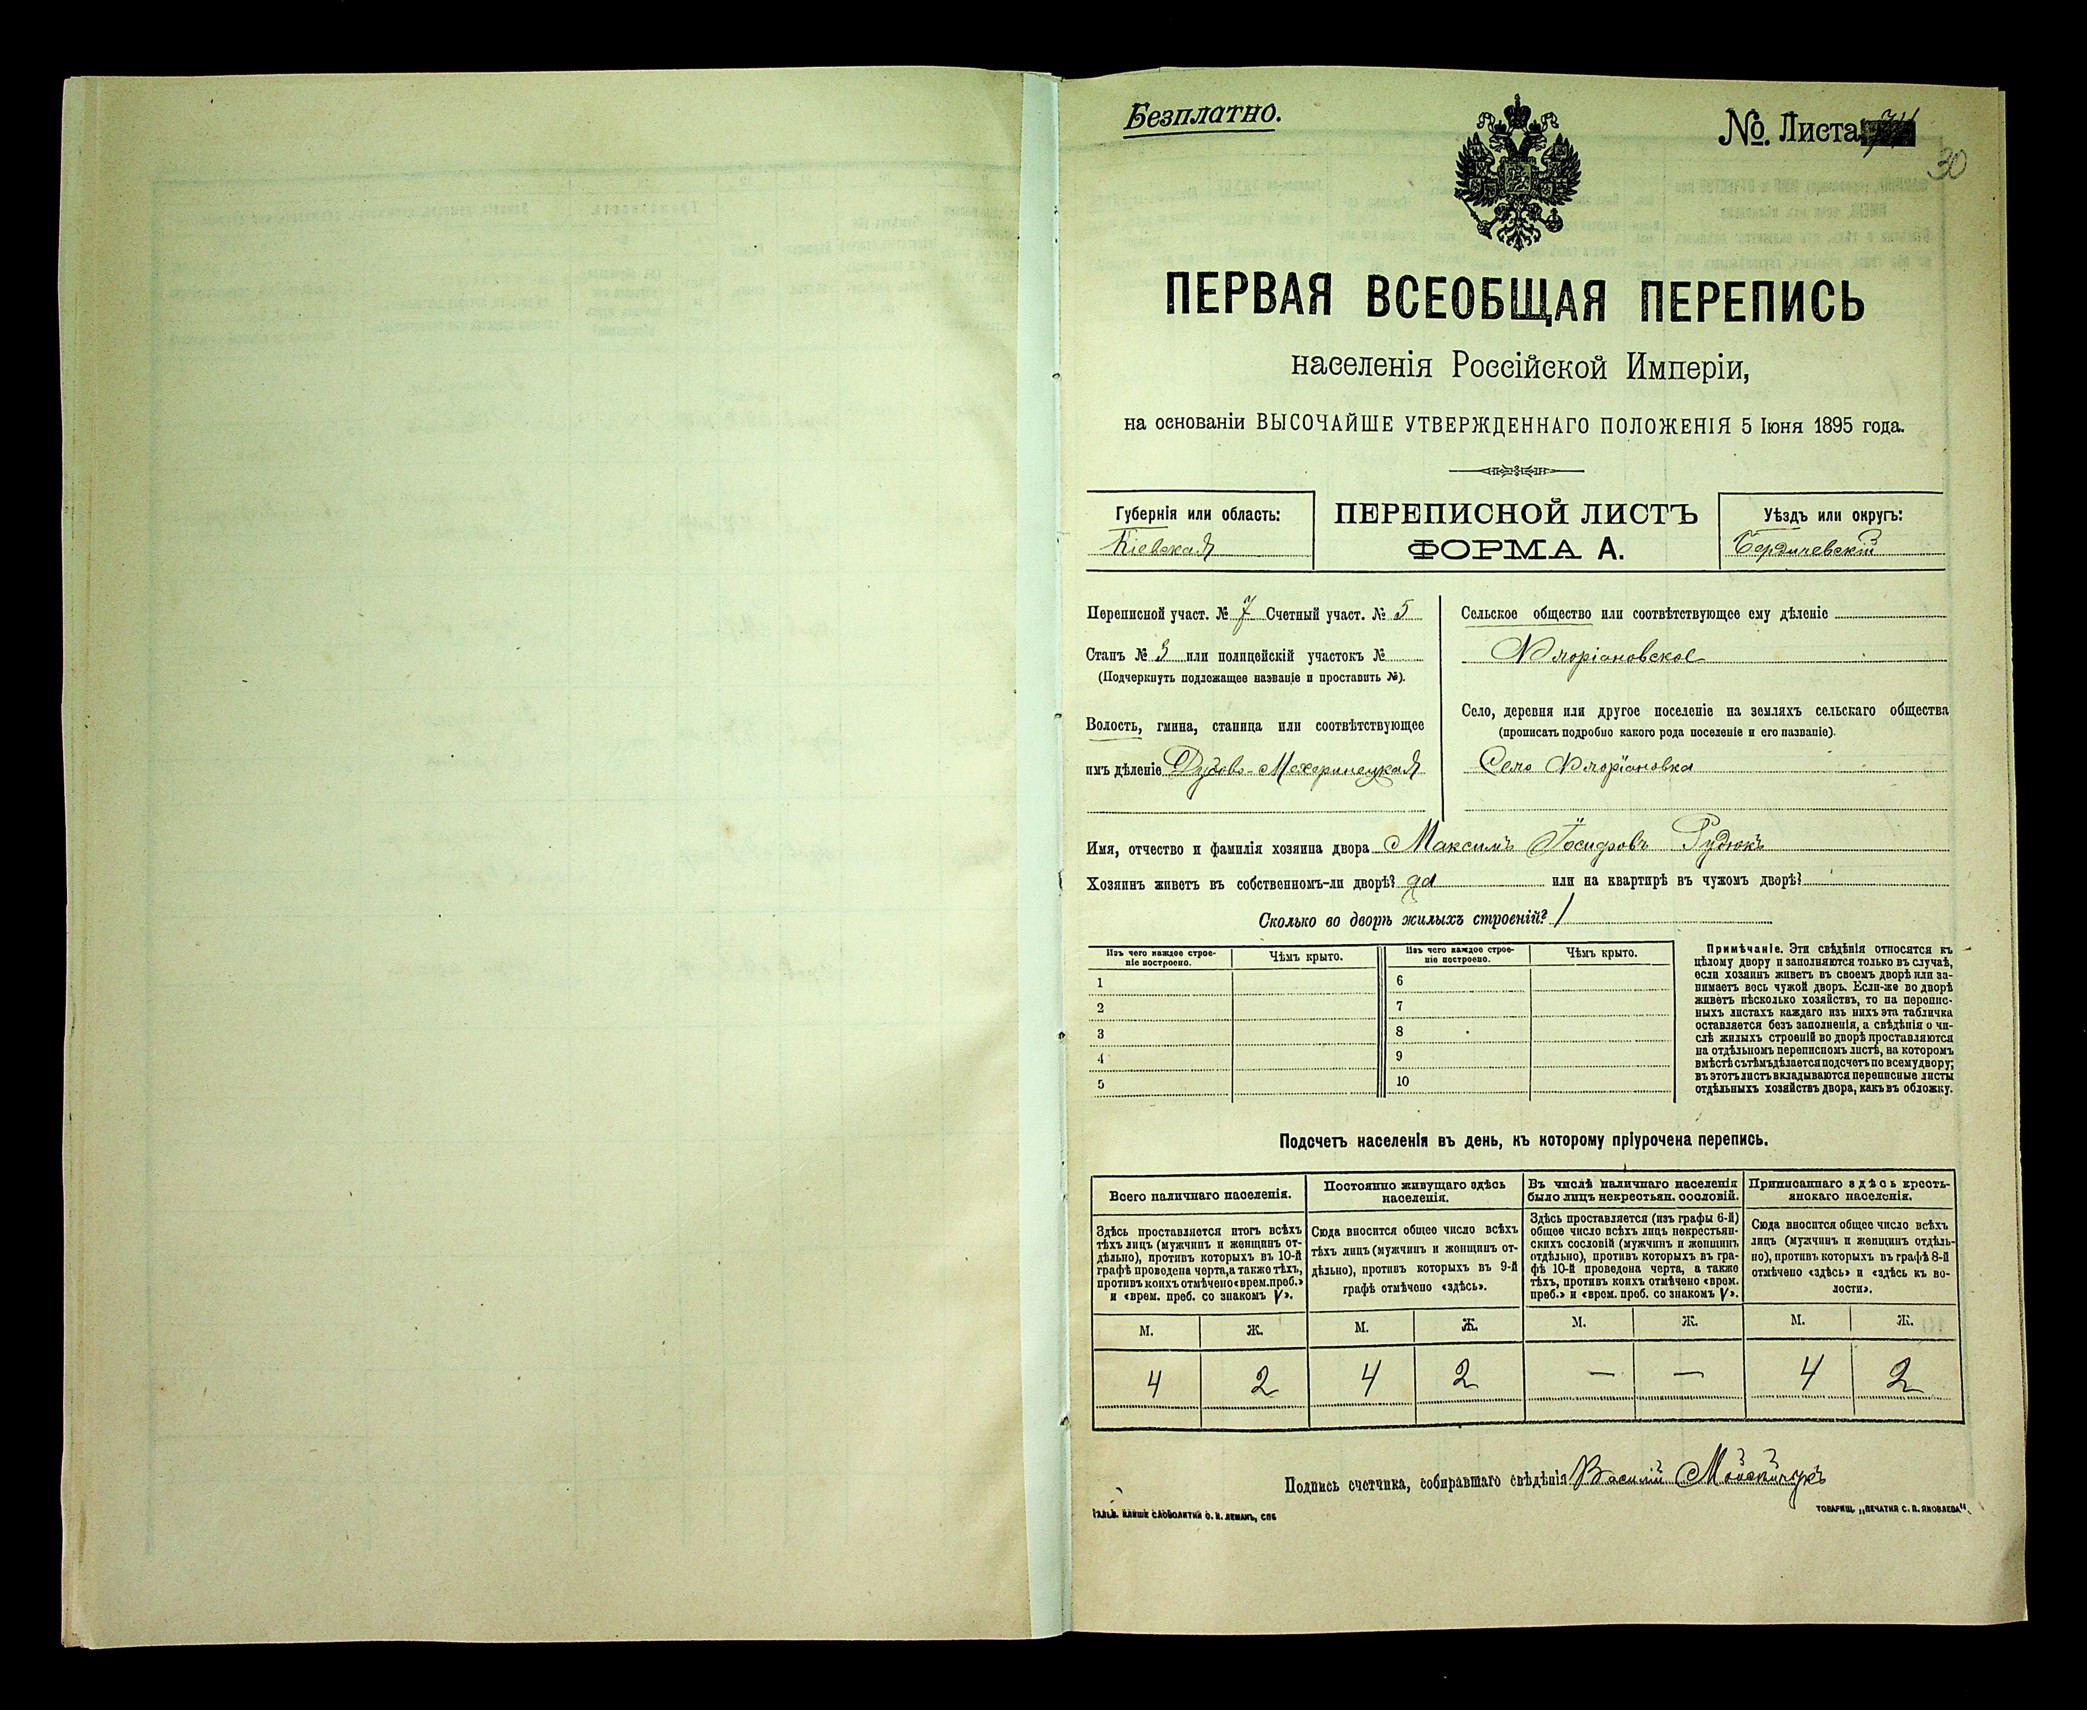 Безплатно.
№ Листа
30
ПЕРВАЯ ВСЕОБЩАЯ ПЕРЕПИСЬ
населенія Россійской Имперіи,
на основаніи ВЫСОЧАЙШЕ УТВЕРЖДЕННАГО ПОЛОЖЕНІЯ 5 Іюня 1895 года.
Губернія или область:
Кіевская
ПЕРЕПИСНОЙ ЛИСТЪ
ФОРМА А.
Уѣздъ или округъ:
Бердичевскій
Переписной участ. № 7 Счетный участ. № 5
Станъ № 3 или полицейскій участокъ №
(Подчеркнуть подлежащее названіе и проставить №).
Волость, гмина, станица или соотвѣтствующее
имъ дѣленіе Махаринецкая
Сельское общество или соотвѣтствующее ему дѣленіе
Флоріановское
Село, деревня или другое поселеніе на земляхъ сельскаго общества
(прописать подробно какого рода поселеніе и его названіе).
Село Флоріановка
Имя, отчество и фамилія хозяина двора Максимъ Іосифовъ Рудюкъ
Хозяинъ живетъ въ собственномъ-ли дворѣ? да или на квартирѣ въ чужомъ дворѣ?
Сколько во дворѣ жилыхъ строеній? 1
Изъ чего каждое строе-
ніе построено.
Чѣмъ крыто.
1
2
3
4
5
Изъ чего каждое строе-
ніе построено.
Чѣмъ крыто.
6
7
8
9
10
Примѣчаніе. Эти свѣдѣнія относятся къ
цѣлому двору и заполняются только въ случаѣ,
если хозяинъ живетъ въ своемъ дворѣ или за-
нимаетъ весь чужой дворъ. Если-же во дворѣ
живетъ нѣсколько хозяйствъ, то на перепис-
ныхъ листахъ каждаго изъ нихъ эта табличка
оставляется безъ заполненія, а свѣдѣнія о чи-
слѣ жилыхъ строеній во дворѣ проставляются
на отдѣльномъ переписномъ листѣ, на которомъ
вмѣстѣ съ тѣмъ дѣлается подсчетъ по всему двору;
въ этотъ листъ вкладываются переписные листы
отдѣльныхъ хозяйствъ двора, какъ въ обложку.
Подсчетъ населенія въ день, къ которому пріурочена перепись.
Всего наличнаго населенія.
Здѣсь проставляется итогъ всѣхъ
тѣхъ лицъ (мужчинъ и женщинъ от-
дѣльно), противъ которыхъ въ 10-й
графѣ проведена черта, а также тѣхъ,
противъ коихъ отмѣчено «врем. преб.»
и «врем. преб. со знакомъ V».
М. Ж.
4 2
Постоянно живущаго здѣсь
населенія.
Сюда вносится общее число всѣхъ
тѣхъ лицъ (мужчинъ и женщинъ от-
дѣльно), противъ которыхъ въ 9-й
графѣ отмѣчено «здѣсь».
М. Ж.
4 2
Въ числѣ наличнаго населенія
было лицъ некрестьян. сословій.
Здѣсь проставляется (изъ графы 6-й)
общее число всѣхъ лицъ некрестьян-
скихъ сословій (мужчинъ и женщинъ
отдѣльно), противъ которыхъ въ гра-
фѣ 10-й проведена черта, а также
тѣхъ, противъ коихъ отмѣчено «врем.
преб.» и «врем. преб. со знакомъ V».
М. Ж.
— —
Приписаннаго здѣсь кресть-
янскаго населенія.
Сюда вносится общее число всѣхъ
лицъ (мужчинъ и женщинъ отдѣль-
но), противъ которыхъ въ графѣ 8-й
отмѣчено «здѣсь» и «здѣсь къ во-
лости».
М. Ж.
4 2
Подпись счетчика, собиравшаго свѣдѣнія Василій
ГАЛЬВ. КЛИШЕ СЛОВОЛИТНИ О. И. ЛЕМАНЪ, СПБ
ТОВАРИЩ. „ПЕЧАТНЯ С. П. ЯКОВЛЕВА".